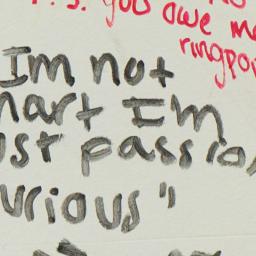 P.S. you owe me
ringpo
Im not
mart Im
ust passio
urious"